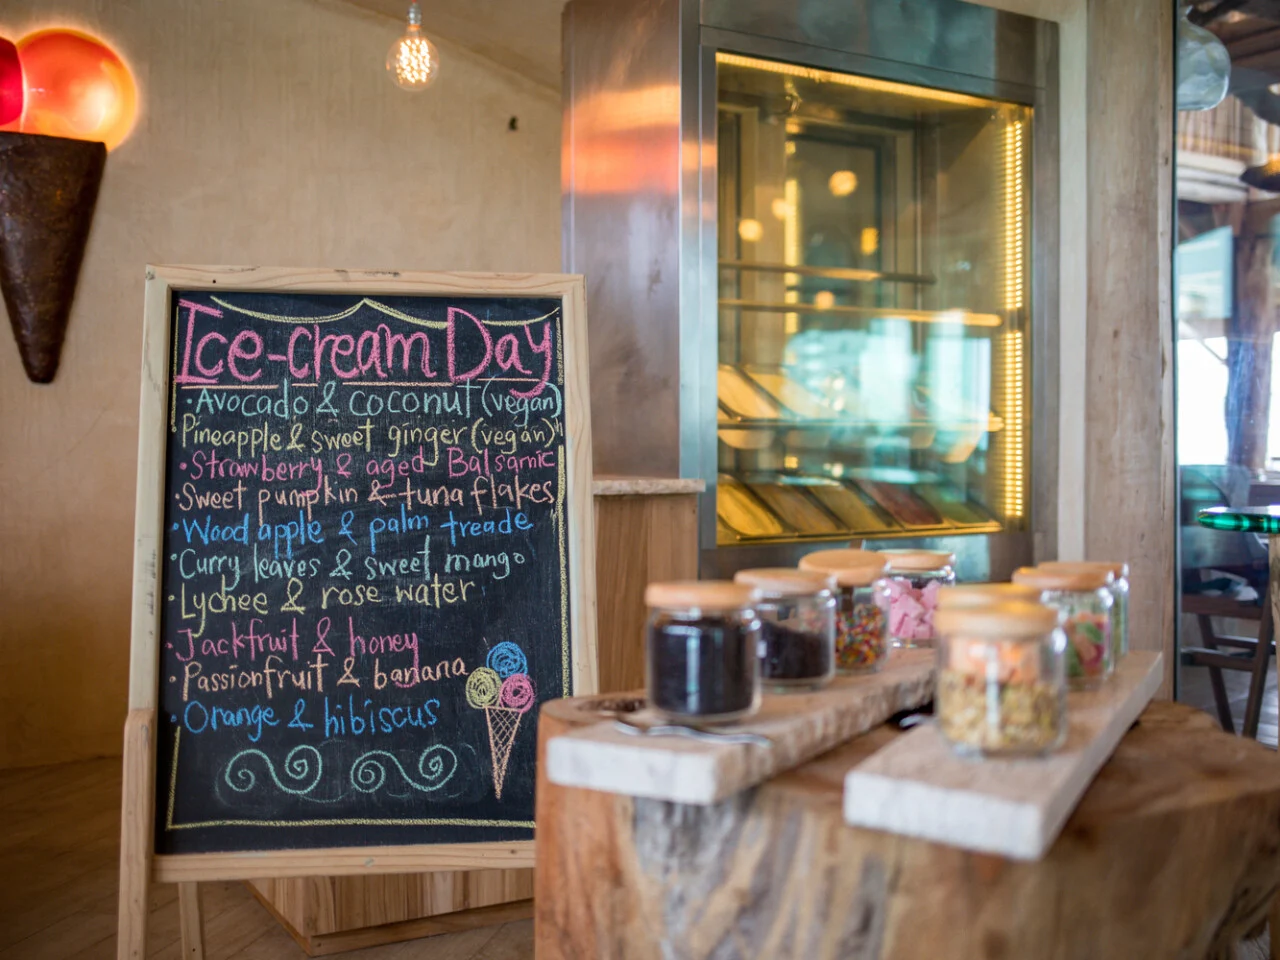 Ice-cream Day
·Avocado & coconut (vegan)
Pineapple & sweet ginger (vegan)
·Strawberry & aged Balsamic
·Sweet pumpkin & tuna flakes
·Wood apple & palm treade
·Curry leaves & sweet mango
·Lychee & rose water
·Jackfruit & honey
·Passionfruit & banana
·Orange & hibiscus